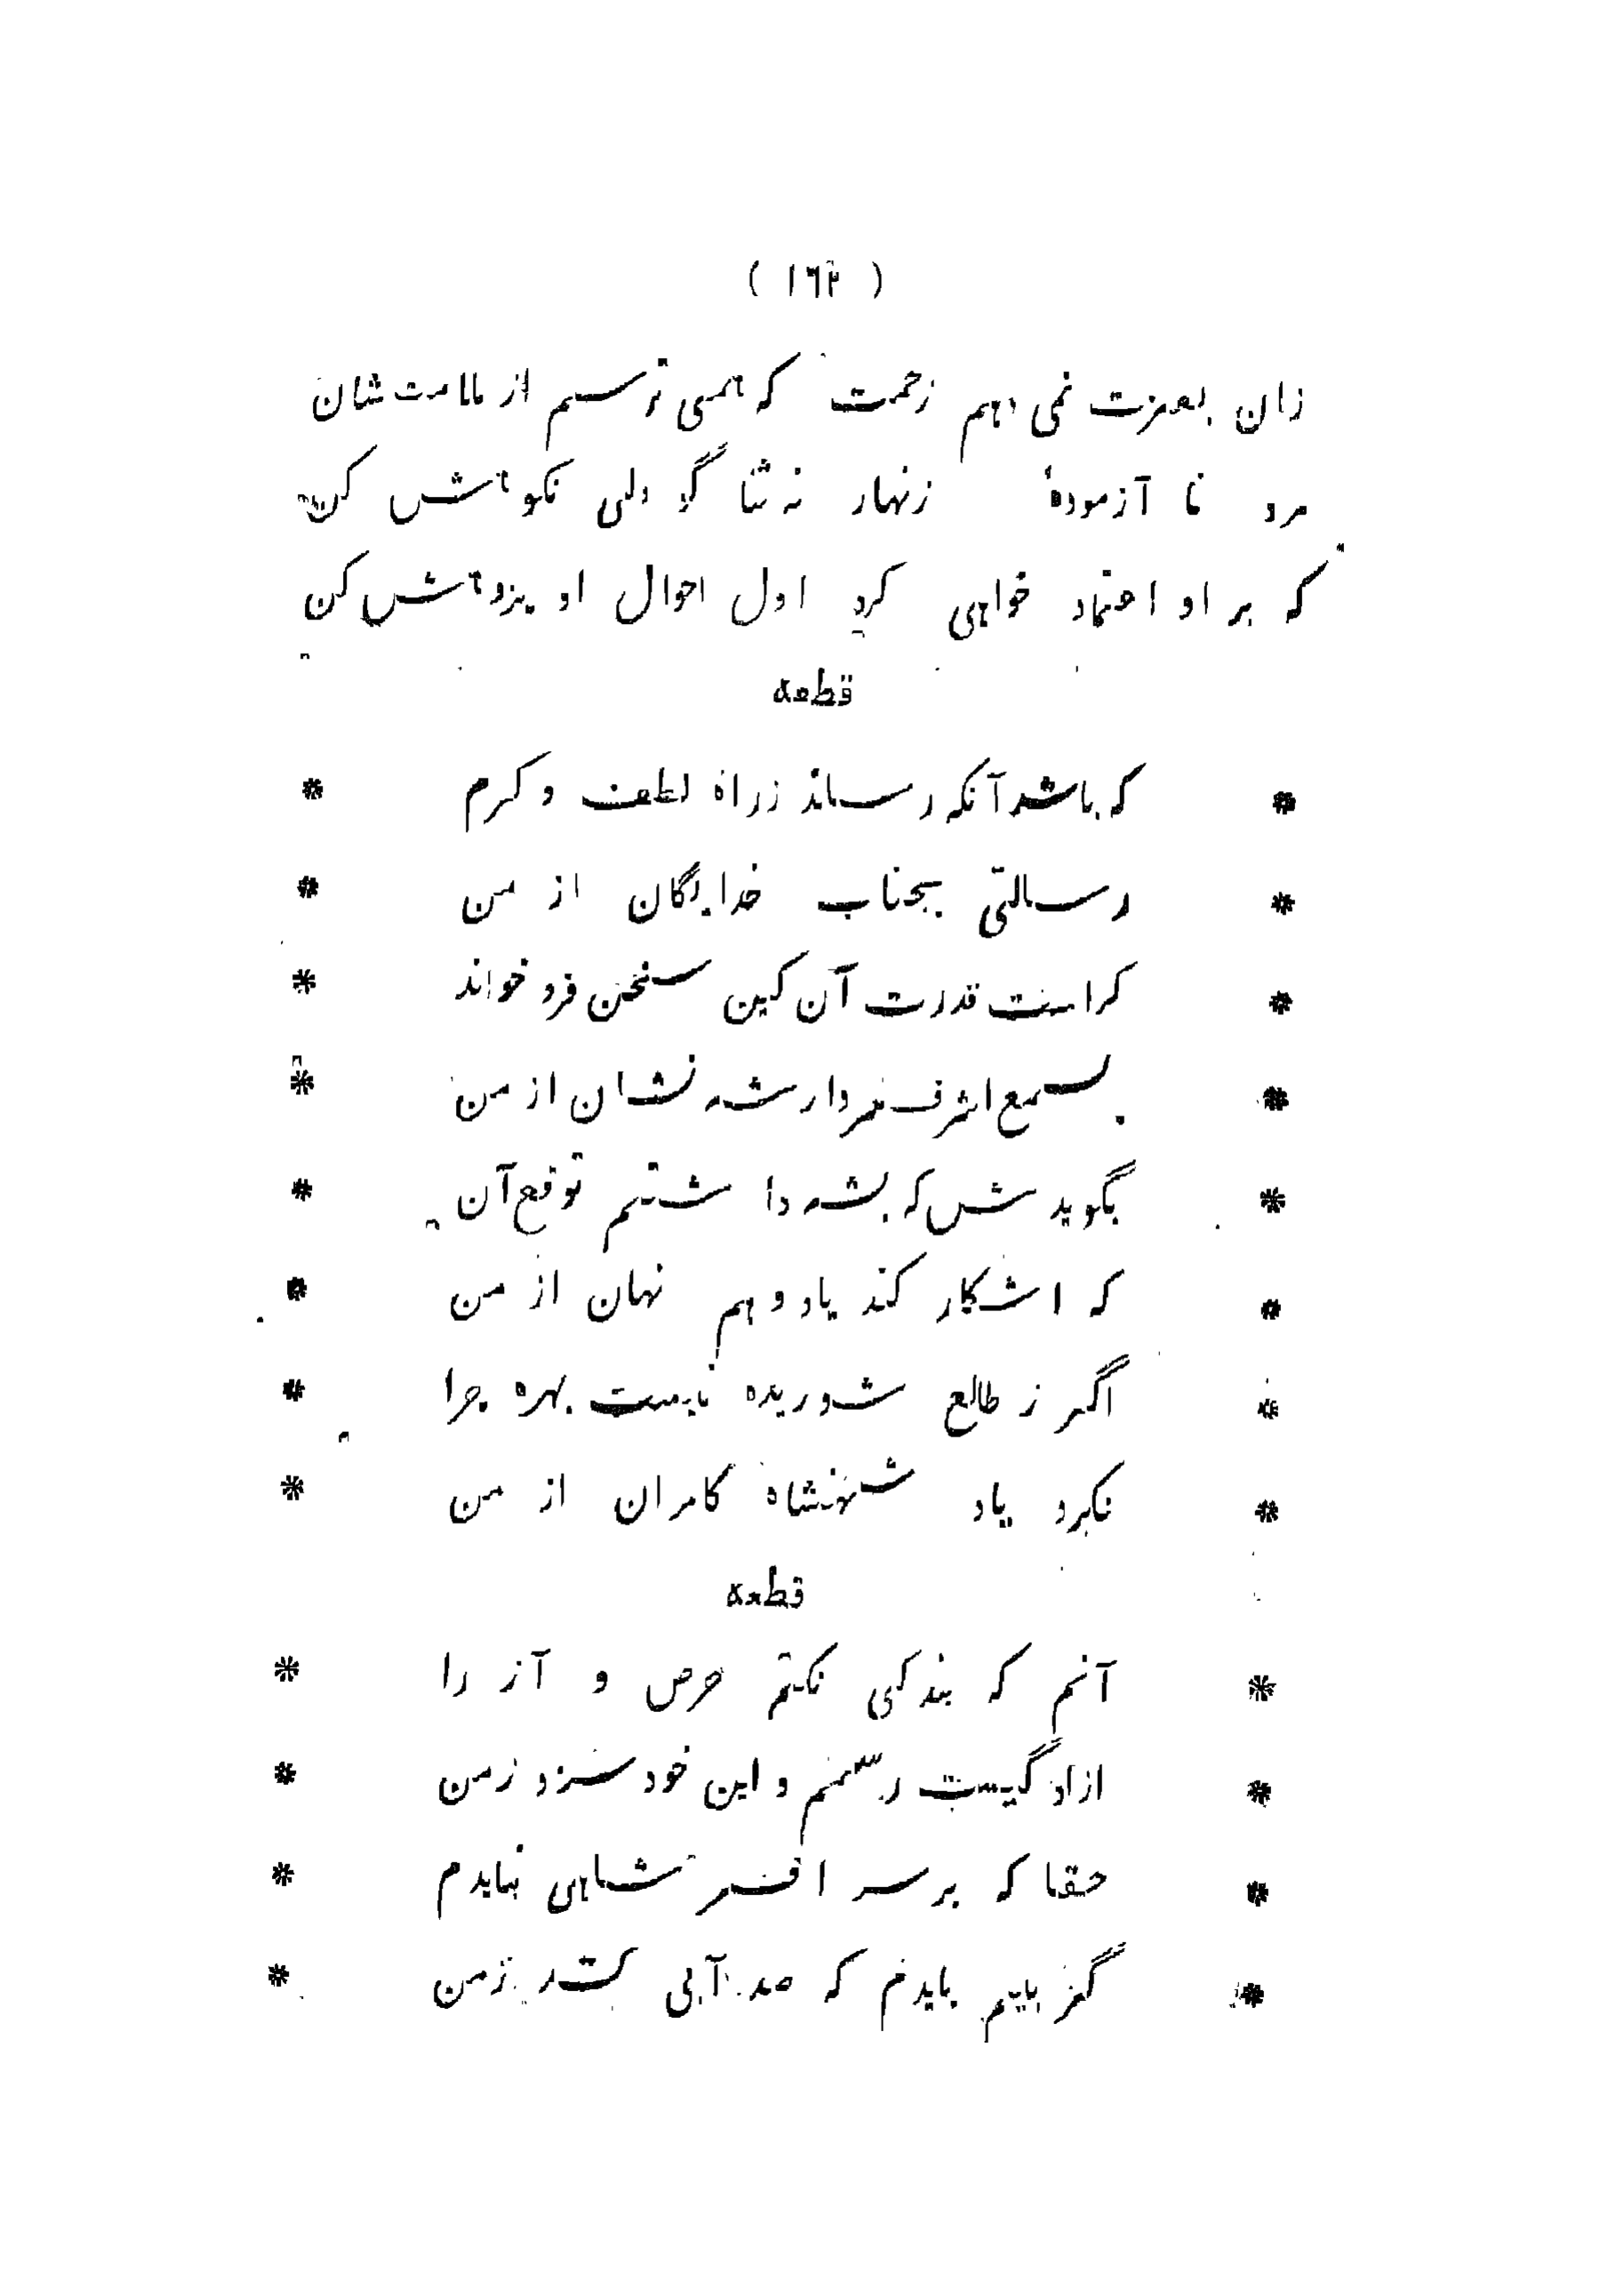 ( ۱۶۲ )
زان بعزت نمی دهم زحمت که همی ترسم از ملامت شان
مرد نا آزمودهٔ زنهار نه ثنا گو ولی نکوهش کن
که بر او اعتماد خواهی کرد اول احوال او پژوهش کن
قطعه
* که باشد آنکه رساند ز راه لطف و کرم *
* رسالتی بجناب خدایگان از من *
* کراست قدرت آن کین سخن فرو خواند *
* بسمع اشرف سردار شه نشان از من *
* بگوید ش که بشه دا شتم توقع آن *
* که اشکار کند یاد و هم نهان از من *
* اگر ز طالع شوریده نایست بهره چرا *
* نکرد یاد شهنشاه کامران از من *
قطعه
* آنم که بندکی نکنم حرص و آز را *
* ازاد گیست رسمم و این خود سزد زمن *
* حقا که بر سر افسر شاهی نبایدم *
* گر بایدم که صد آبی زمن *